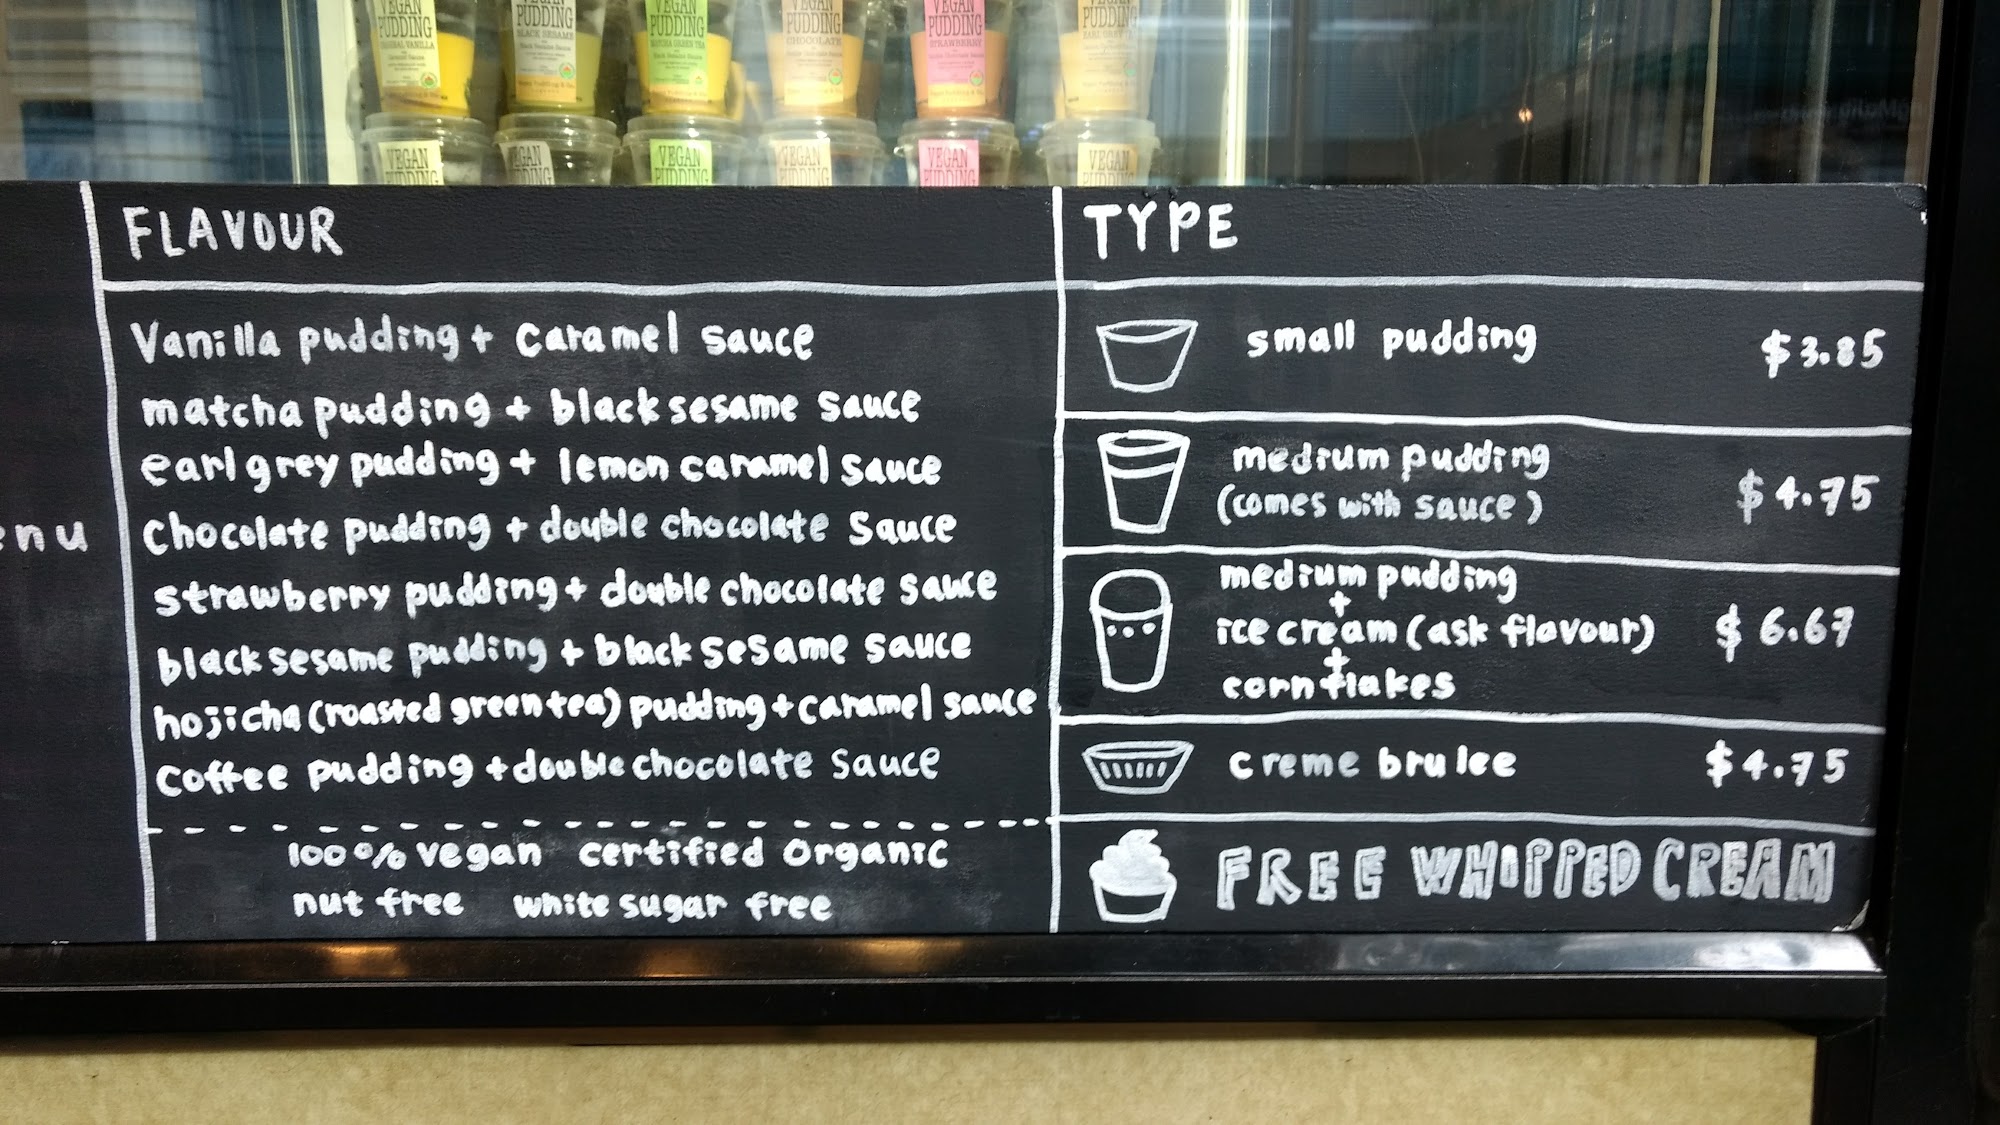 VEGAN PUDDING
VEGAN PUDDING
BLACK SESAME
VEGAN PUDDING
MATCHA GREEN TEA
VEGAN PUDDING
CHOCOLATE
VEGAN PUDDING
STRAWBERRY
VEGAN PUDDING
EARL GREY
VEGAN
VEGAN
VEGAN
VEGAN
VEGAN
VEGAN
enu
FLAVOUR
Vanilla pudding + caramel sauce
matcha pudding + black sesame sauce
earl grey pudding + lemon caramel sauce
chocolate pudding + double chocolate sauce
strawberry pudding + double chocolate sauce
black sesame pudding + black sesame sauce
hojicha (roasted green tea) pudding + caramel sauce
coffee pudding + double chocolate sauce
100% vegan certified organic
nut free white sugar free
TYPE
small pudding $3.85
medium pudding
(comes with sauce) $4.75
medium pudding
+
ice cream (ask flavour) $6.67
+
cornflakes
creme brulee $4.75
FREE WHIPPED CREAM